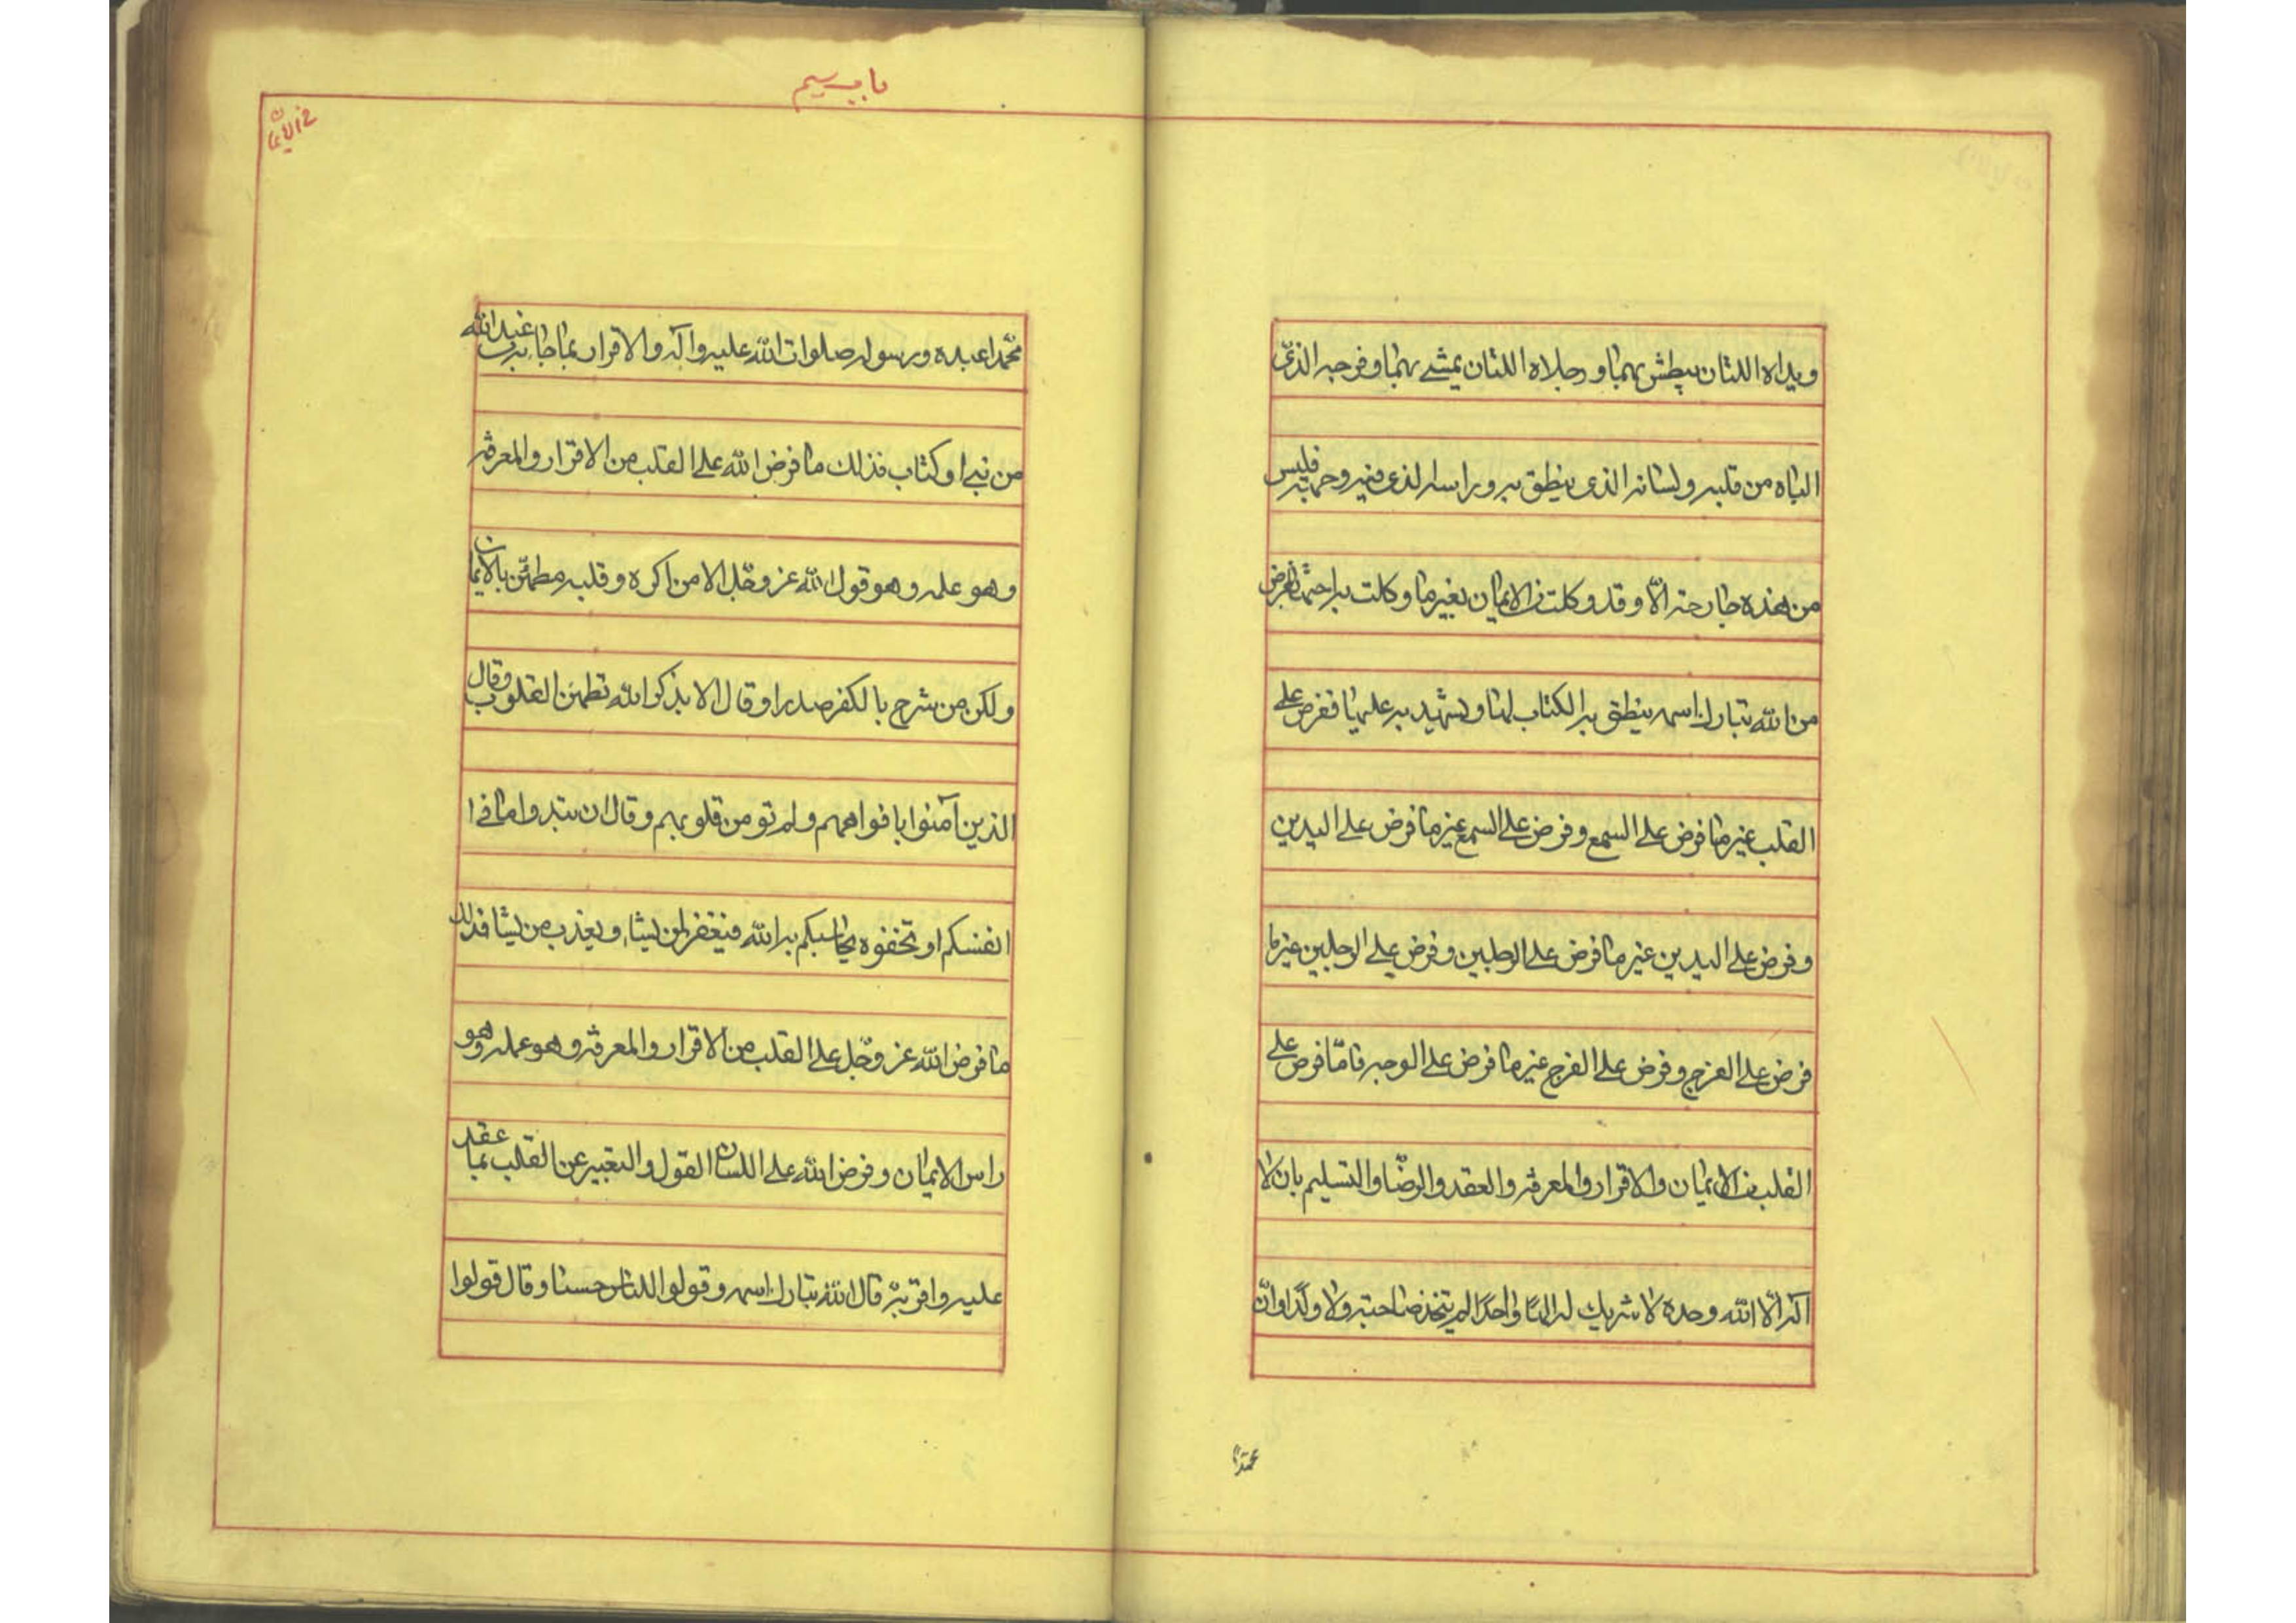 ويداه اللتان يبطش بهما و رجلاه اللتان يمشے بهما و فرجه الذی
الباه من قلبه ولسانه الذی ينطق به و راسه الذی فيه وجهه فليس
من هذه جارحة الّا وقد وكلت من الايمان بغير ما وكلت به اختها بفرض
من الله تبارك اسمه ينطق به الكتاب لها و يشهد به عليها ففرض علے
القلب غير ما فرض علے السمع وفرض علے السمع غير ما فرض علے اليدين
وفرض علے اليدين غير ما فرض علے الرجلين وفرض علے الرجلين غير ما
فرض علے الفرج وفرض علے الفرج غير ما فرض علے الوجه فامّا فرض علے
القلب من الايمان والاقرار والمعرفة والعقد والرضّا والتسليم بان لا
اله الّا الله وحده لا شريك له الهًا واحدًا لم يتخذ صاحبة ولا ولدًا وانّ
محمّدًا
باب سيم
فے الايمان
محمّدا عبده ورسوله صلوات الله عليه وآله والاقرار بما جاء به من عند الله
من نبے او كتاب فذلك ما فرض الله علے القلب من الاقرار والمعرفة
وهو عمله وهو قول الله عز وجّل الا من اكره وقلبه مطمئّن بالايمان
ولكن من شرح بالكفر صدرا وقال الا بذكر الله تطمئن القلوب وقال
الذين آمنوا بافواههم ولم تومن قلوبهم وقال ان تبدوا ما فے ا
انفسكم او تخفوه يحاسبكم به الله فيغفر لمن يشاء ويعذب من يشا فذلك
ما فرض الله عز وجّل علے القلب من الاقرار والمعرفة وهو عمله وهو
راس الايمان وفرض الله علے اللسان القول والتعبير عن القلب بما عقد
عليه واقر به قال الله تبارك اسمه وقولوا للناس حسنا وقال قولوا